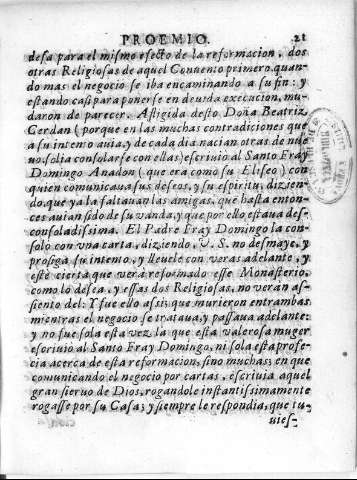 PROEMIO. 21
desa para el mismo efecto de la reformacion, dos
otras Religiosas de aquel Conuento primero quan-
do mas el negocio se iba encaminando a su fin: y
estando casi para ponerse en deuida execucion, mu-
daron de parecer. Afligida desto Doña Beatriz
Cerdan (porque en las muchas contradiciones que
a su intento auia, y de cada dia nacian otras de nue
uo, solia consolarse con ellas) escriuio al Santo Fray
Domingo Anadon (que era como su Eliseo) con
quien comunicaua sus deseos, y su espiritu, dizien-
do, que ya la faltauan las amigas, que hasta enton-
ces auian sido de su vanda, y que por ello estaua des-
consoladissima. El Padre Fray Domingo la con-
solo con vna carta, diziendo, V. S. no desmaye, y
prosiga su intento, y lleuele con veras adelante, y
estè cierta que verà reformado esse Monasterio,
como lo desea, y essas dos Religiosas, no veran as-
siento del: Y fue ello assi; que murieron entrambas
mientras el negocio se trataua, y passaua adelante:
y no fue sola esta vez la que esta valerosa muger
escriuio al Santo Fray Domingo, ni sola esta profe-
cia acerca de esta reformacion, sino muchas; en que
comunicando el negocio por cartas, escriuia aquel
gran sieruo de Dios, rogandole instantissimamente
rogasse por su Casa; y siempre le respondia, que tu-
uies-